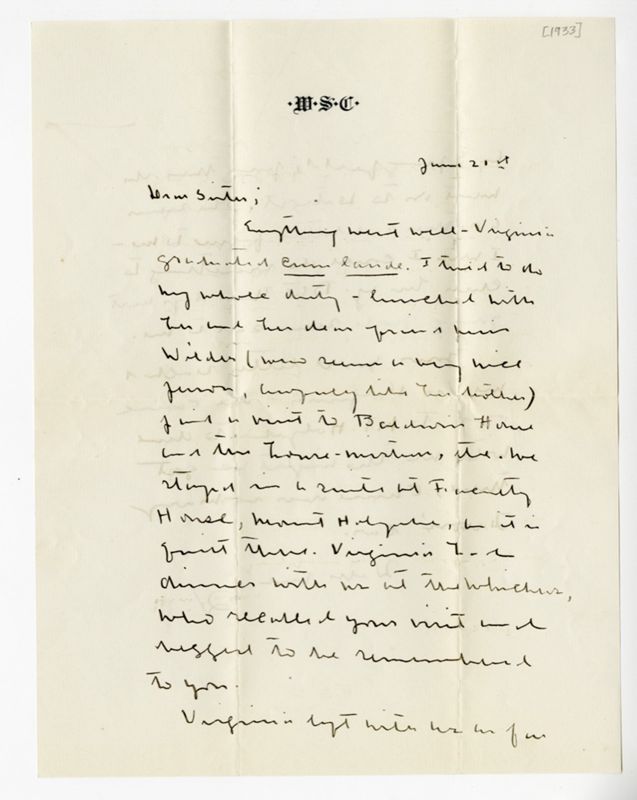 [1933]
·W·S·C·
June 21st
Dear Sister;
Everything went well – Virginia
graduated cum laude. I tried to do
my whole duty – lunched with
her and her dear friend Miss
Wilder (who seems a very nice
person, hugely like her mother)
paid a visit to Baldwin House
and the house-mistress, etc. We
stayed in a suite at Faculty
House, Mount Holyoke, as it is
quiet there. Virginia had
dinner with us at the Whichers,
who recalled your visit and
begged to be remembered
to you.
Virginia left with us as far